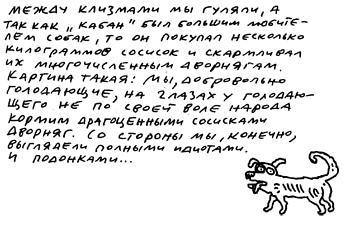 МЕЖДУ КЛИЗМАМИ МЫ ГУЛЯЛИ, А
ТАК КАК „КАБАН" БЫЛ БОЛЬШИМ ЛЮБИТЕ-
ЛЕМ СОБАК, ТО ОН ПОКУПАЛ НЕСКОЛЬКО
КИЛОГРАММОВ СОСИСОК И СКАРМЛИВАЛ
ИХ МНОГОЧИСЛЕННЫМ ДВОРНЯГАМ.
КАРТИНА ТАКАЯ: МЫ, ДОБРОВОЛЬНО
ГОЛОДАЮЩИЕ, НА ГЛАЗАХ У ГОЛОДАЮ-
ЩЕГО НЕ ПО СВОЕЙ ВОЛЕ НАРОДА
КОРМИМ ДРАГОЦЕННЫМИ СОСИСКАМИ
ДВОРНЯГ. СО СТОРОНЫ МЫ, КОНЕЧНО,
ВЫГЛЯДЕЛИ ПОЛНЫМИ ИДИОТАМИ.
И ПОДОНКАМИ...